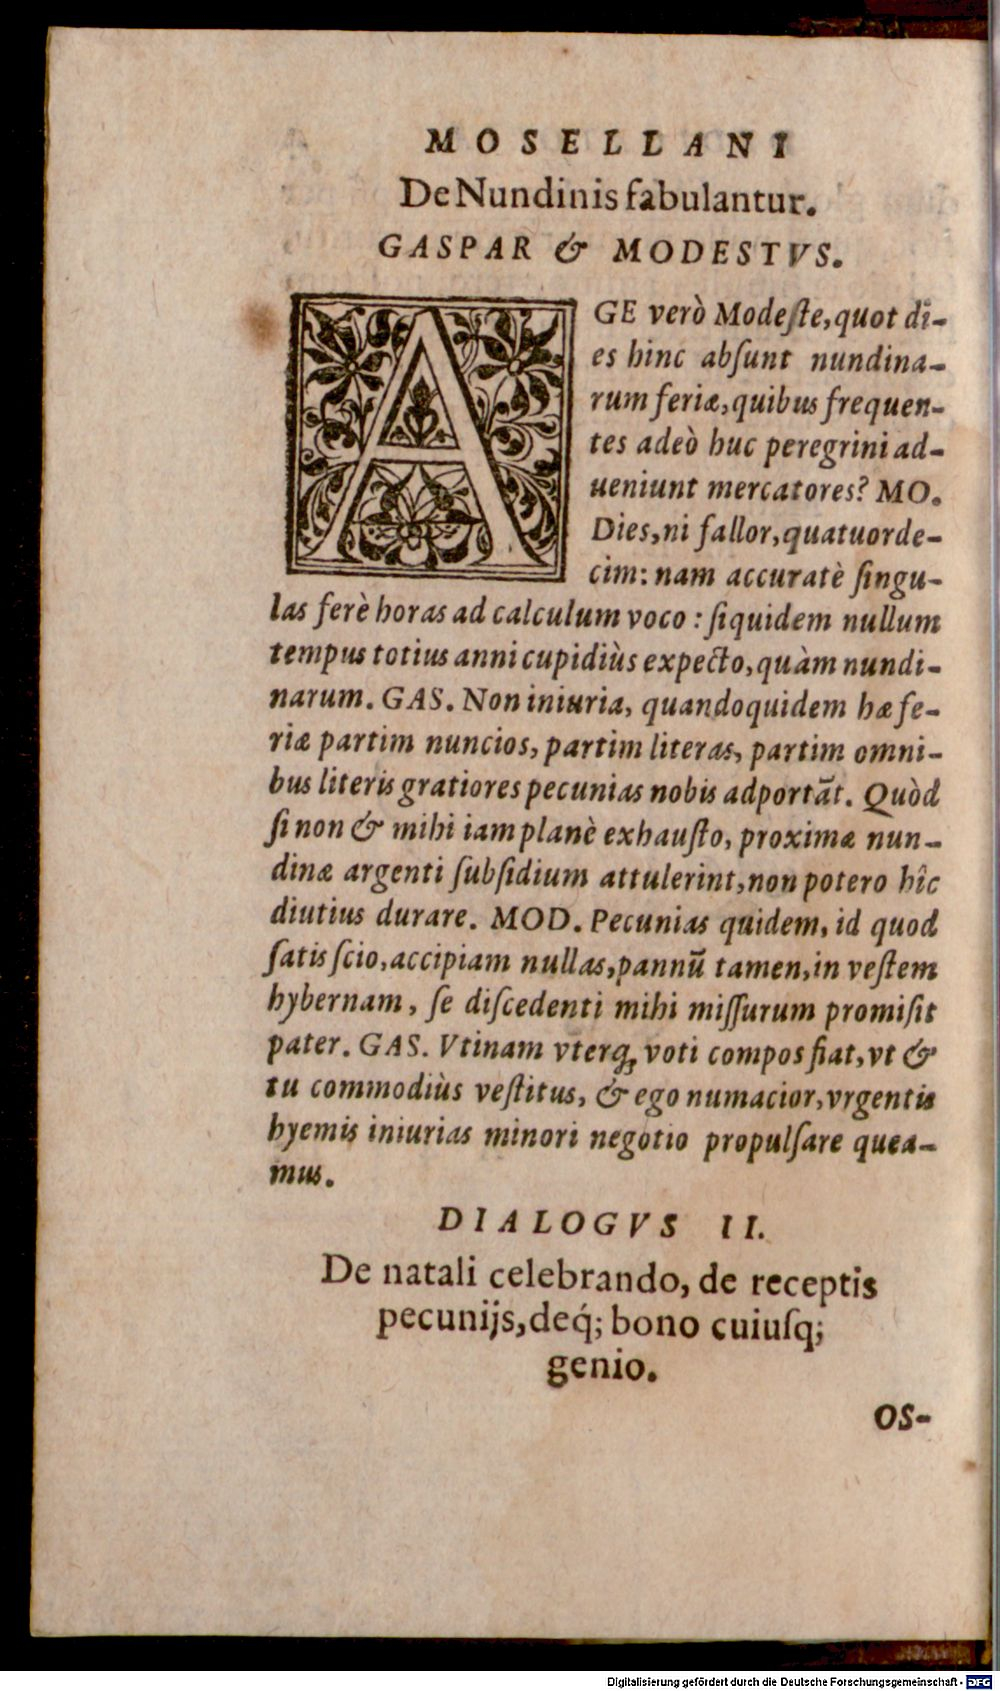 MOSELLANI
De Nundinis fabulantur.
GASPAR & MODESTVS.
AGE verò Modeſte, quot di-
es hinc abſunt nundina-
rum feriæ, quibus frequen-
tes adeò huc peregrini ad-
ueniunt mercatores? MO.
Dies, ni fallor, quatuorde-
cim: nam accuratè ſingu-
las ferè horas ad calculum voco: ſiquidem nullum
tempus totius anni cupidiùs expecto, quàm nundi-
narum. GAS. Non iniuria, quandoquidem hæ fe-
riæ partim nuncios, partim literas, partim omni-
bus literis gratiores pecunias nobis adportãt. Quòd
ſi non & mihi iam planè exhauſto, proximæ nun-
dinæ argenti ſubſidium attulerint, non potero hîc
diutius durare. MOD. Pecunias quidem, id quod
ſatis ſcio, accipiam nullas, pannũ tamen, in veſtem
hybernam, ſe diſcedenti mihi miſſurum promiſit
pater. GAS. Vtinam vterq; voti compos fiat, vt &
tu commodiùs veſtitus, & ego numacior, vrgentis
hyemis iniurias minori negotio propulſare quea-
mus.
DIALOGVS II.
De natali celebrando, de receptis
pecunijs, deq́; bono cuiuſq;
genio.
OS-
Digitalisierung gefördert durch die Deutsche Forschungsgemeinschaft - DFG